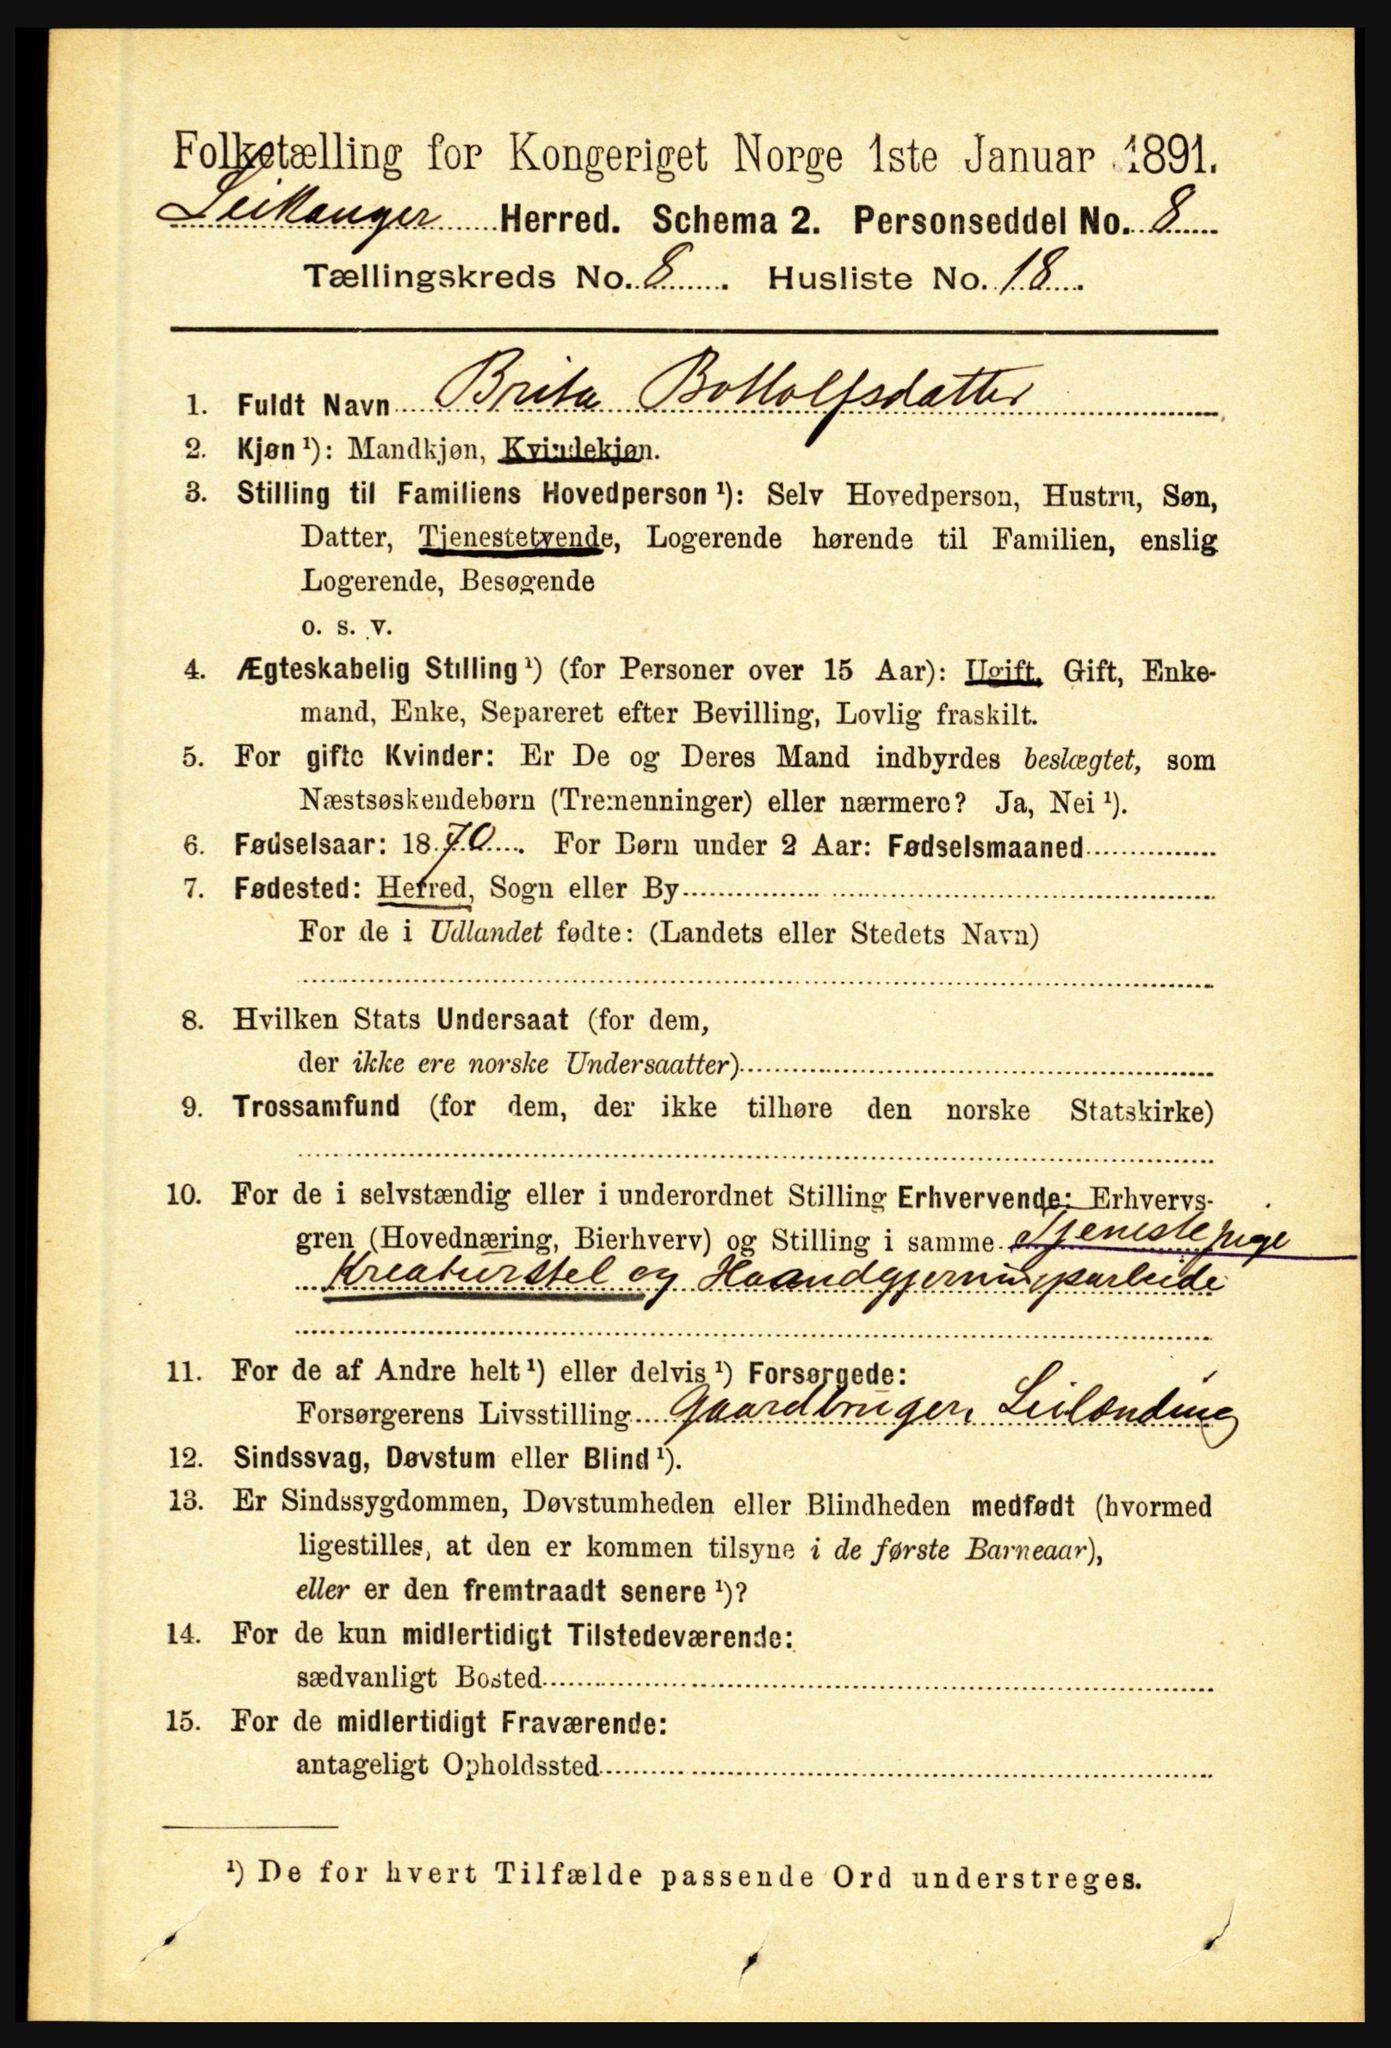 Folketælling for Kongeriget Norge 1ste Januar 1891.
Leikanger Herred. Schema 2. Personseddel No. 8
Tællingskreds No. 8. Husliste No. 18.
1. Fuldt Navn Brita Bottolfsdatter
2. Kjøn ¹): Mandkjøn, Kvindekjøn.
3. Stilling til Familiens Hovedperson ¹): Selv Hovedperson, Hustru, Søn,
Datter, Tjenestetyende, Logerende hørende til Familien, enslig
Logerende, Besøgende
o. s. v.
4. Ægteskabelig Stilling ¹) (for Personer over 15 Aar): Ugift, Gift, Enke-
mand, Enke, Separeret efter Bevilling, Lovlig fraskilt.
5. For gifte Kvinder: Er De og Deres Mand indbyrdes beslægtet, som
Næstsøskendebørn (Tremenninger) eller nærmere? Ja, Nei ¹).
6. Fødselsaar: 1870. For Børn under 2 Aar: Fødselsmaaned
7. Fødested: Herred, Sogn eller By
For de i Udlandet fødte: (Landets eller Stedets Navn)
8. Hvilken Stats Undersaat (for dem,
der ikke ere norske Undersaatter)
9. Trossamfund (for dem, der ikke tilhøre den norske Statskirke)
10. For de i selvstændig eller i underordnet Stilling Erhvervende: Erhvervs-
gren (Hovednæring, Bierhverv) og Stilling i samme Tjenestepige
Kreaturstel og Haandgjerningsarbeide
11. For de af Andre helt ¹) eller delvis ¹) Forsørgede:
Forsørgerens Livsstilling Gaardbruger, Leilænding
12. Sindssvag, Døvstum eller Blind ¹).
13. Er Sindssygdommen, Døvstumheden eller Blindheden medfødt (hvormed
ligestilles, at den er kommen tilsyne i de første Barneaar),
eller er den fremtraadt senere ¹)?
14. For de kun midlertidigt Tilstedeværende:
sædvanligt Bosted
15. For de midlertidigt Fraværende:
antageligt Opholdssted
¹) De for hvert Tilfælde passende Ord understreges.